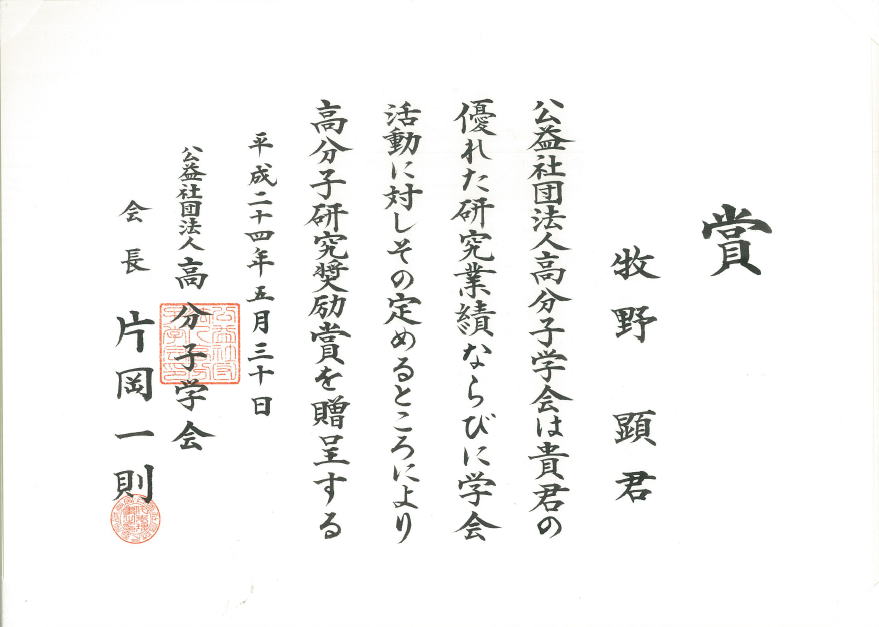 賞
牧野 顕君
公益社団法人高分子学会は貴君の
優れた研究業績ならびに学会
活動に対しその定めるところにより
高分子研究奨励賞を贈呈する
平成二十四年五月三十日
公益社団法人高分子学会
会長 片岡一則